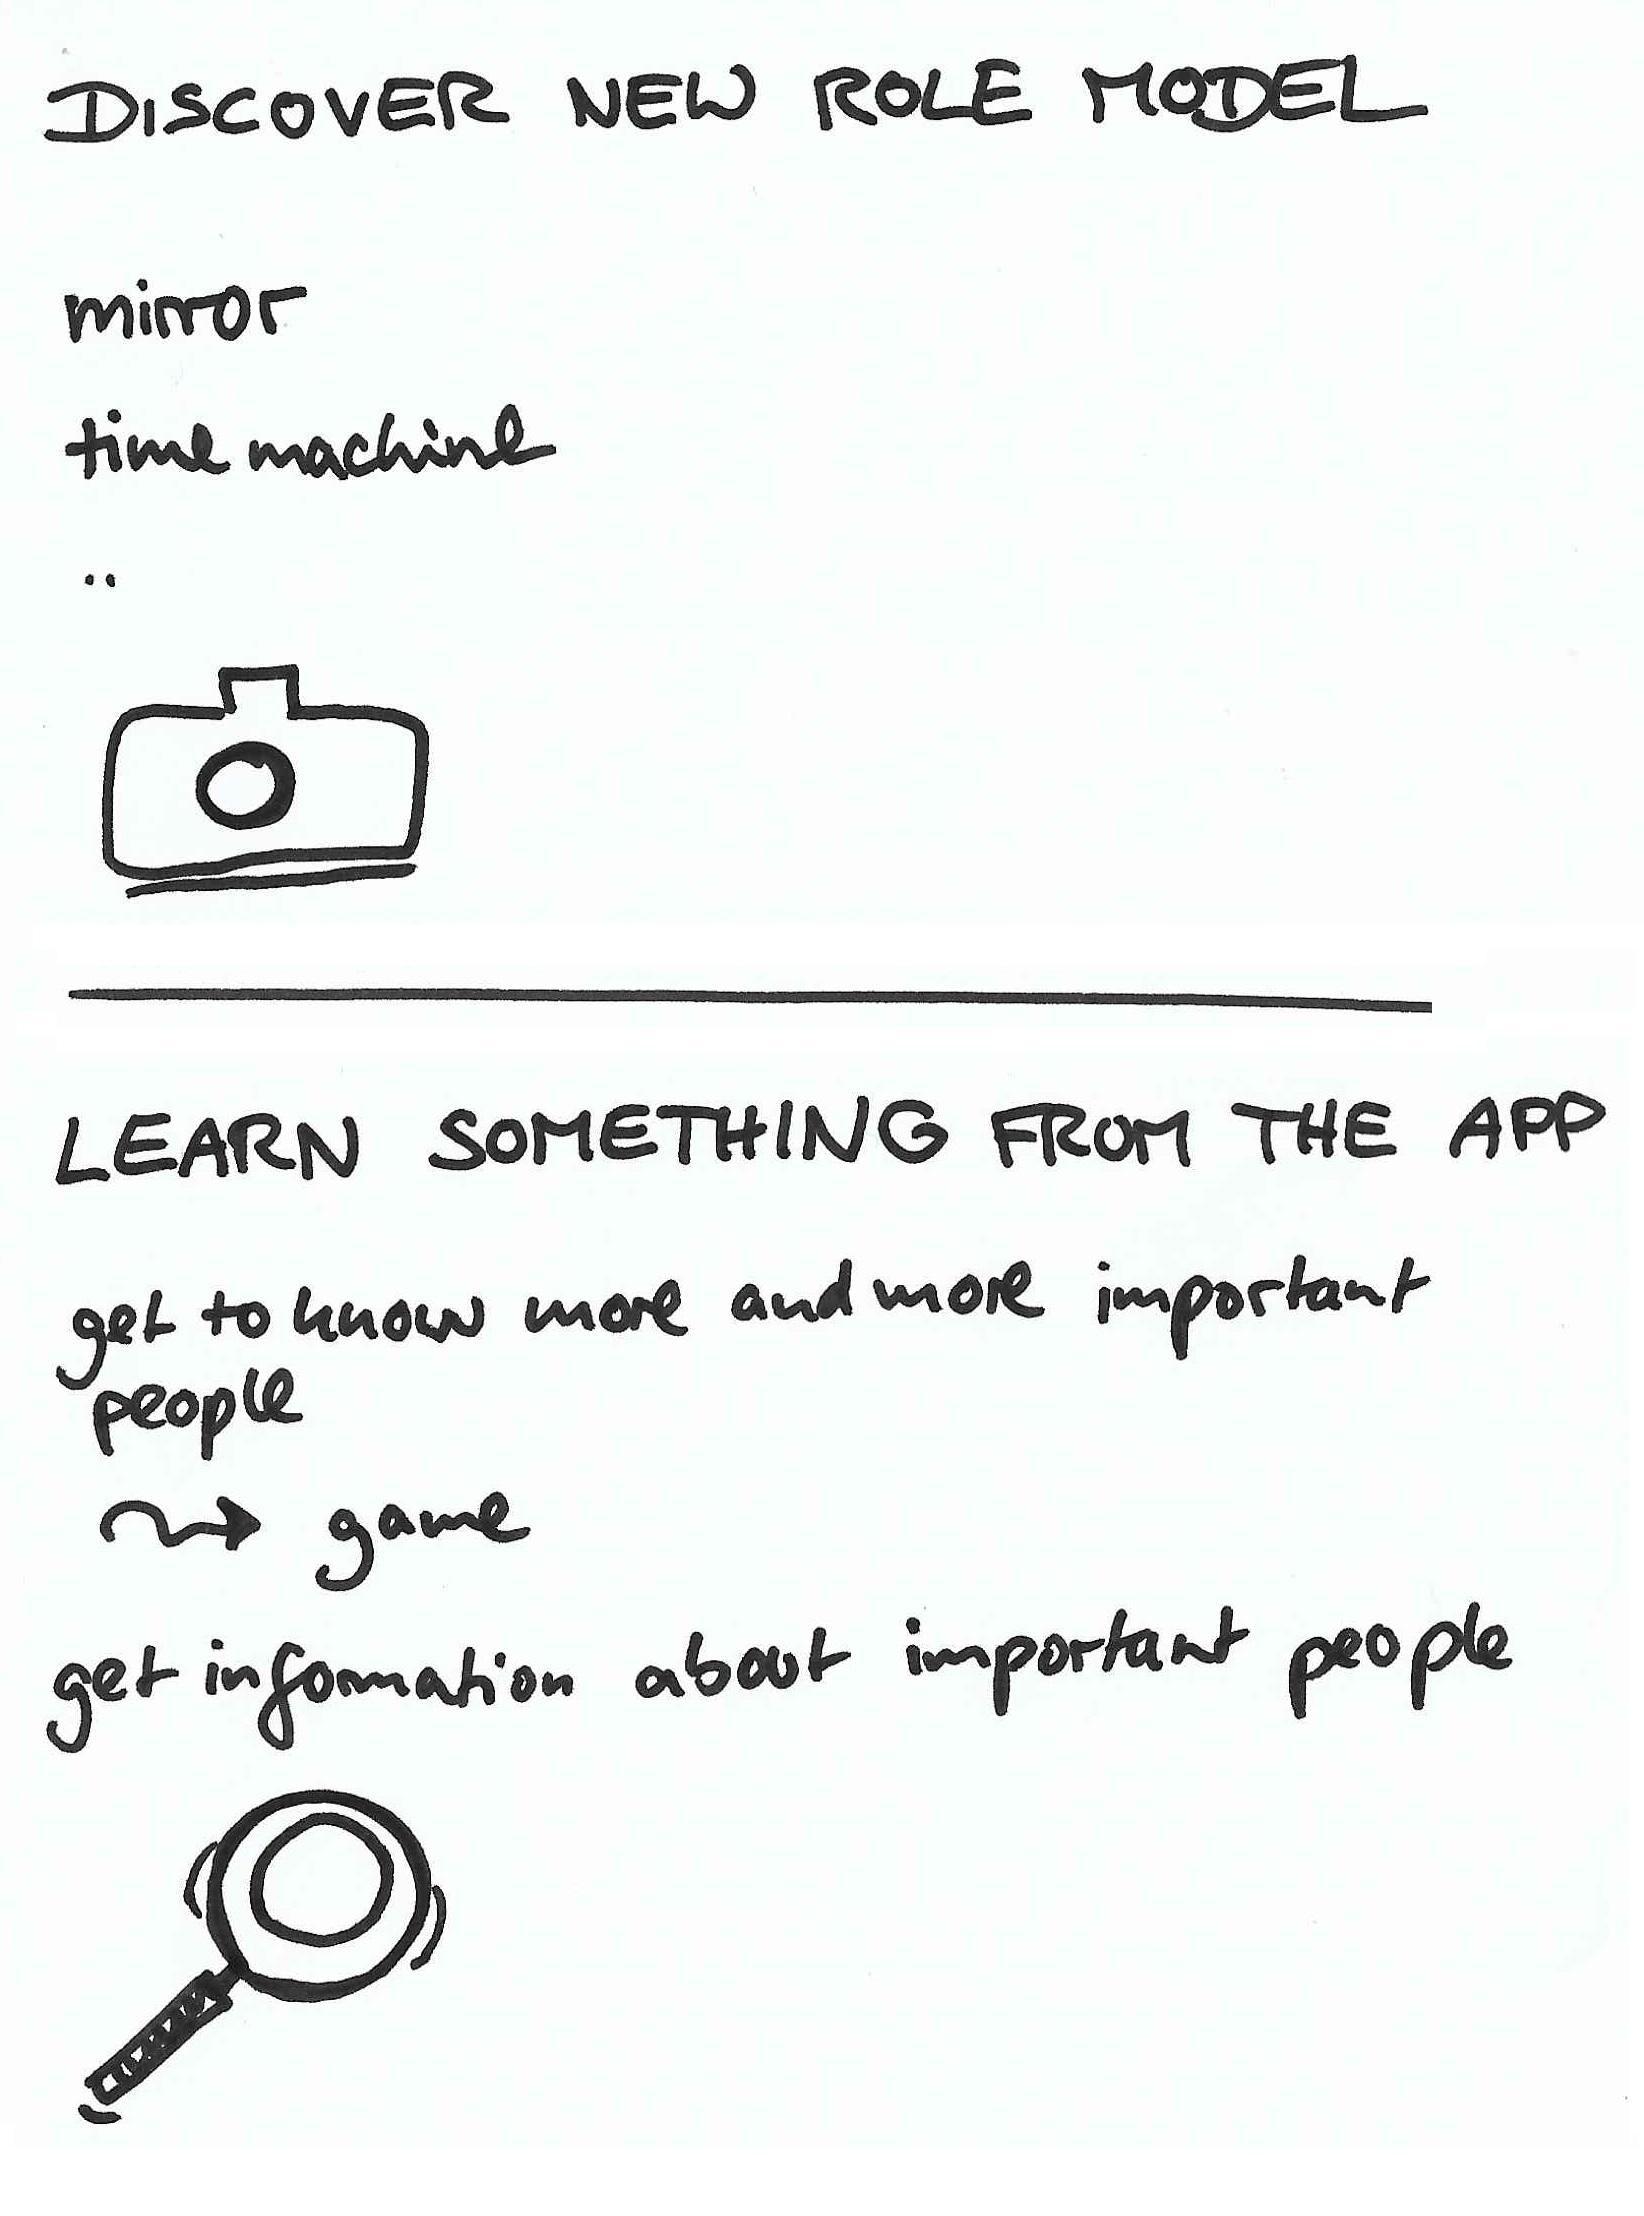 DISCOVER NEW ROLE MODEL
mirror
time machine
..
LEARN SOMETHING FROM THE APP
get to know more and more important
people
game
get information about important people